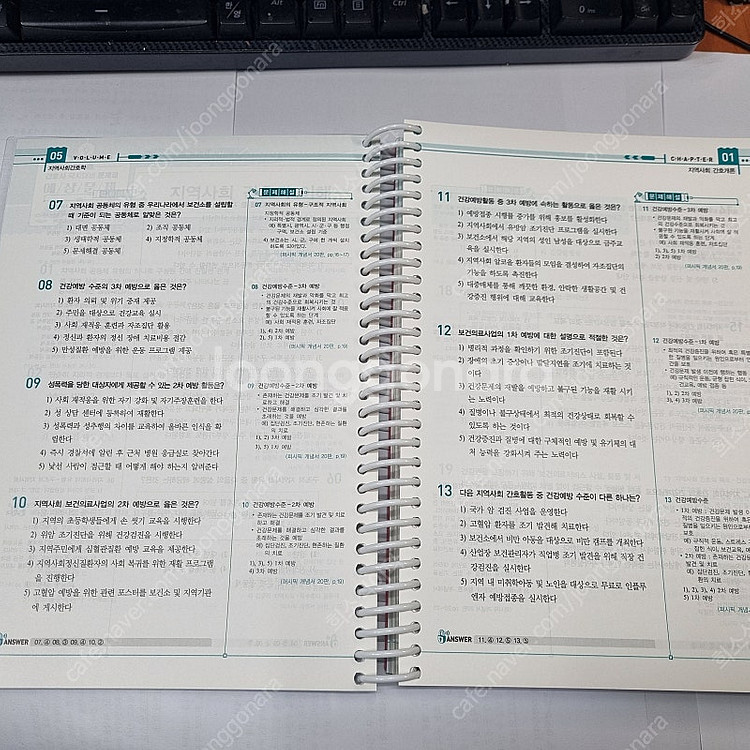 한/영
Alt
Ctrl
Ins
05 V·O·L·U·M·E
지역사회간호학
07 지역사회 공동체의 유형 중 우리나라에서 보건소를 설립할
때 기준이 되는 공동체로 알맞은 것은?
1) 대면 공동체 2) 조직 공동체
3) 생태학적 공동체 4) 지정학적 공동체
5) 문제해결 공동체
08 건강예방 수준의 3차 예방으로 옳은 것은?
1) 환자 의뢰 및 위기 중재 제공
2) 주민을 대상으로 건강교육 실시
3) 사회 재적응 훈련과 자조집단 활용
4) 정신과 환자의 정신 장애 치료비용 절감
5) 만성질환 예방을 위한 운동 프로그램 제공
09 성폭력을 당한 대상자에게 제공할 수 있는 2차 예방 활동은?
1) 사회 재적응을 위한 자기 강화 및 자기주장훈련을 한다
2) 성 상담 센터에 동행하여 재활한다
3) 성폭력과 성추행의 차이를 교육하여 올바른 인식을 확
립한다
4) 즉시 경찰서에 알린 후 근처 병원 응급실로 찾아간다
5) 낯선 사람이 접근할 때 어떻게 해야 하는지 알려준다
10 지역사회 보건의료사업의 2차 예방으로 옳은 것은?
1) 지역의 초등학생들에게 손 씻기 교육을 시행한다
2) 위암 조기진단을 위해 건강검진을 시행한다
3) 지역주민에게 심혈관질환 예방 교육을 제공한다
4) 지역사회정신질환자의 사회 복귀를 위한 재활 프로그램
을 진행한다
5) 고혈압 예방을 위한 관련 포스터를 보건소 및 지역기관
에 게시한다
문제해설
07 지역사회의 유형-구조적 지역사회
지정학적 공동체
• 지리적·법적 경계로 정의된 지역사회
예) 특별시, 광역시, 시·군·구 등 행정
구역, 보건소 설립 기준
4) 보건소는 시, 군, 구에 한 개씩 설치
하도록 되어있다.
(퍼시픽 개념서 20판, p.16~17)
08 건강예방수준-3차 예방
• 건강문제의 재발과 악화를 막고 최고
의 건강수준으로 회복시키는 것
• 불구된 기능을 재활시켜 사회에 잘 적응
할 수 있도록 하는 단계
예) 사회 재적응 훈련, 자조집단
1), 4) 2차 예방
2), 5) 1차 예방
(퍼시픽 개념서 20판, p.19)
09 건강예방수준-2차 예방
• 존재하는 건강문제를 조기 발견 및 치
료하고 해결
• 건강문제를 해결하고 심각한 결과를
초래하는 것을 예방
예) 집단검진, 조기진단, 현존하는 질환
의 치료
1) 3차 예방
2), 3), 5) 1차 예방
(퍼시픽 개념서 20판, p.19)
10 건강예방수준-2차 예방
• 존재하는 건강문제를 조기 발견 및 치료
하고 해결
• 건강문제를 해결하고 심각한 결과를
초래하는 것을 예방
예) 집단검진, 조기진단, 현존하는 질환
의 치료
1), 3), 5) 1차 예방
4) 3차 예방
(퍼시픽 개념서 20판, p.19)
ANSWER 07. ④ 08. ③ 09. ④ 10. ②
C·H·A·P·T·E·R 01
지역사회 간호개론
11 건강예방활동 중 3차 예방에 속하는 활동으로 옳은 것은?
1) 예방접종 시행률 증가를 위해 홍보를 활성화한다
2) 지역사회에서 유방암 조기진단 프로그램을 실시한다
3) 보건소에서 해당 지역의 성인 남성을 대상으로 금주교
육을 실시한다
4) 지역사회 알코올 환자들의 모임을 결성하여 자조집단의
기능을 하도록 촉진한다
5) 대중매체를 통해 깨끗한 환경, 안락한 생활공간 및 건
강증진 행위에 대해 교육한다
12 보건의료사업의 1차 예방에 대한 설명으로 적절한 것은?
1) 병리적 과정을 확인하기 위한 조기진단이 포함된다
2) 장애의 초기 증상이나 발달지연을 조기에 치료하는 것이
다
3) 건강문제의 재발을 예방하고 불구된 기능을 재활 시키
는 노력이다
4) 질병이나 불구상태에서 최적의 건강상태로 회복할 수
있도록 하는 것이다
5) 건강증진과 질병에 대한 구체적인 예방 및 유기체의 대
처 능력을 강화시켜 주는 노력이다
13 다음 지역사회 간호활동 중 건강예방 수준이 다른 하나는?
1) 국가 암 검진 사업을 운영한다
2) 고혈압 환자를 조기 발견해 치료한다
3) 보건소에서 비만 아동을 대상으로 비만 캠프를 개최한다
4) 산업장 보건관리자가 직업병 조기 발견을 위해 직장 건
강검진을 실시한다
5) 지역 내 미취학아동 및 노인을 대상으로 무료로 인플루
엔자 예방접종을 실시한다
문제해설
11 건강예방수준-3차 예방
• 건강문제의 재발과 악화를 막고 최고
의 건강수준으로 회복시키는 것
• 불구된 기능을 재활시켜 사회에 잘 적
응할 수 있도록 하는 단계
예) 사회 재적응 훈련, 자조집단
1), 3), 5) 1차 예방
2) 2차 예방
(퍼시픽 개념서 20판, p.19)
12 건강예방수준-1차 예방
1), 2) 2차 예방
3), 4) 3차 예방
13 건강예방수준
ANSWER 11. ④ 12. ⑤ 13. ⑤
joonggonara
cafe.naver.com/joonggonara